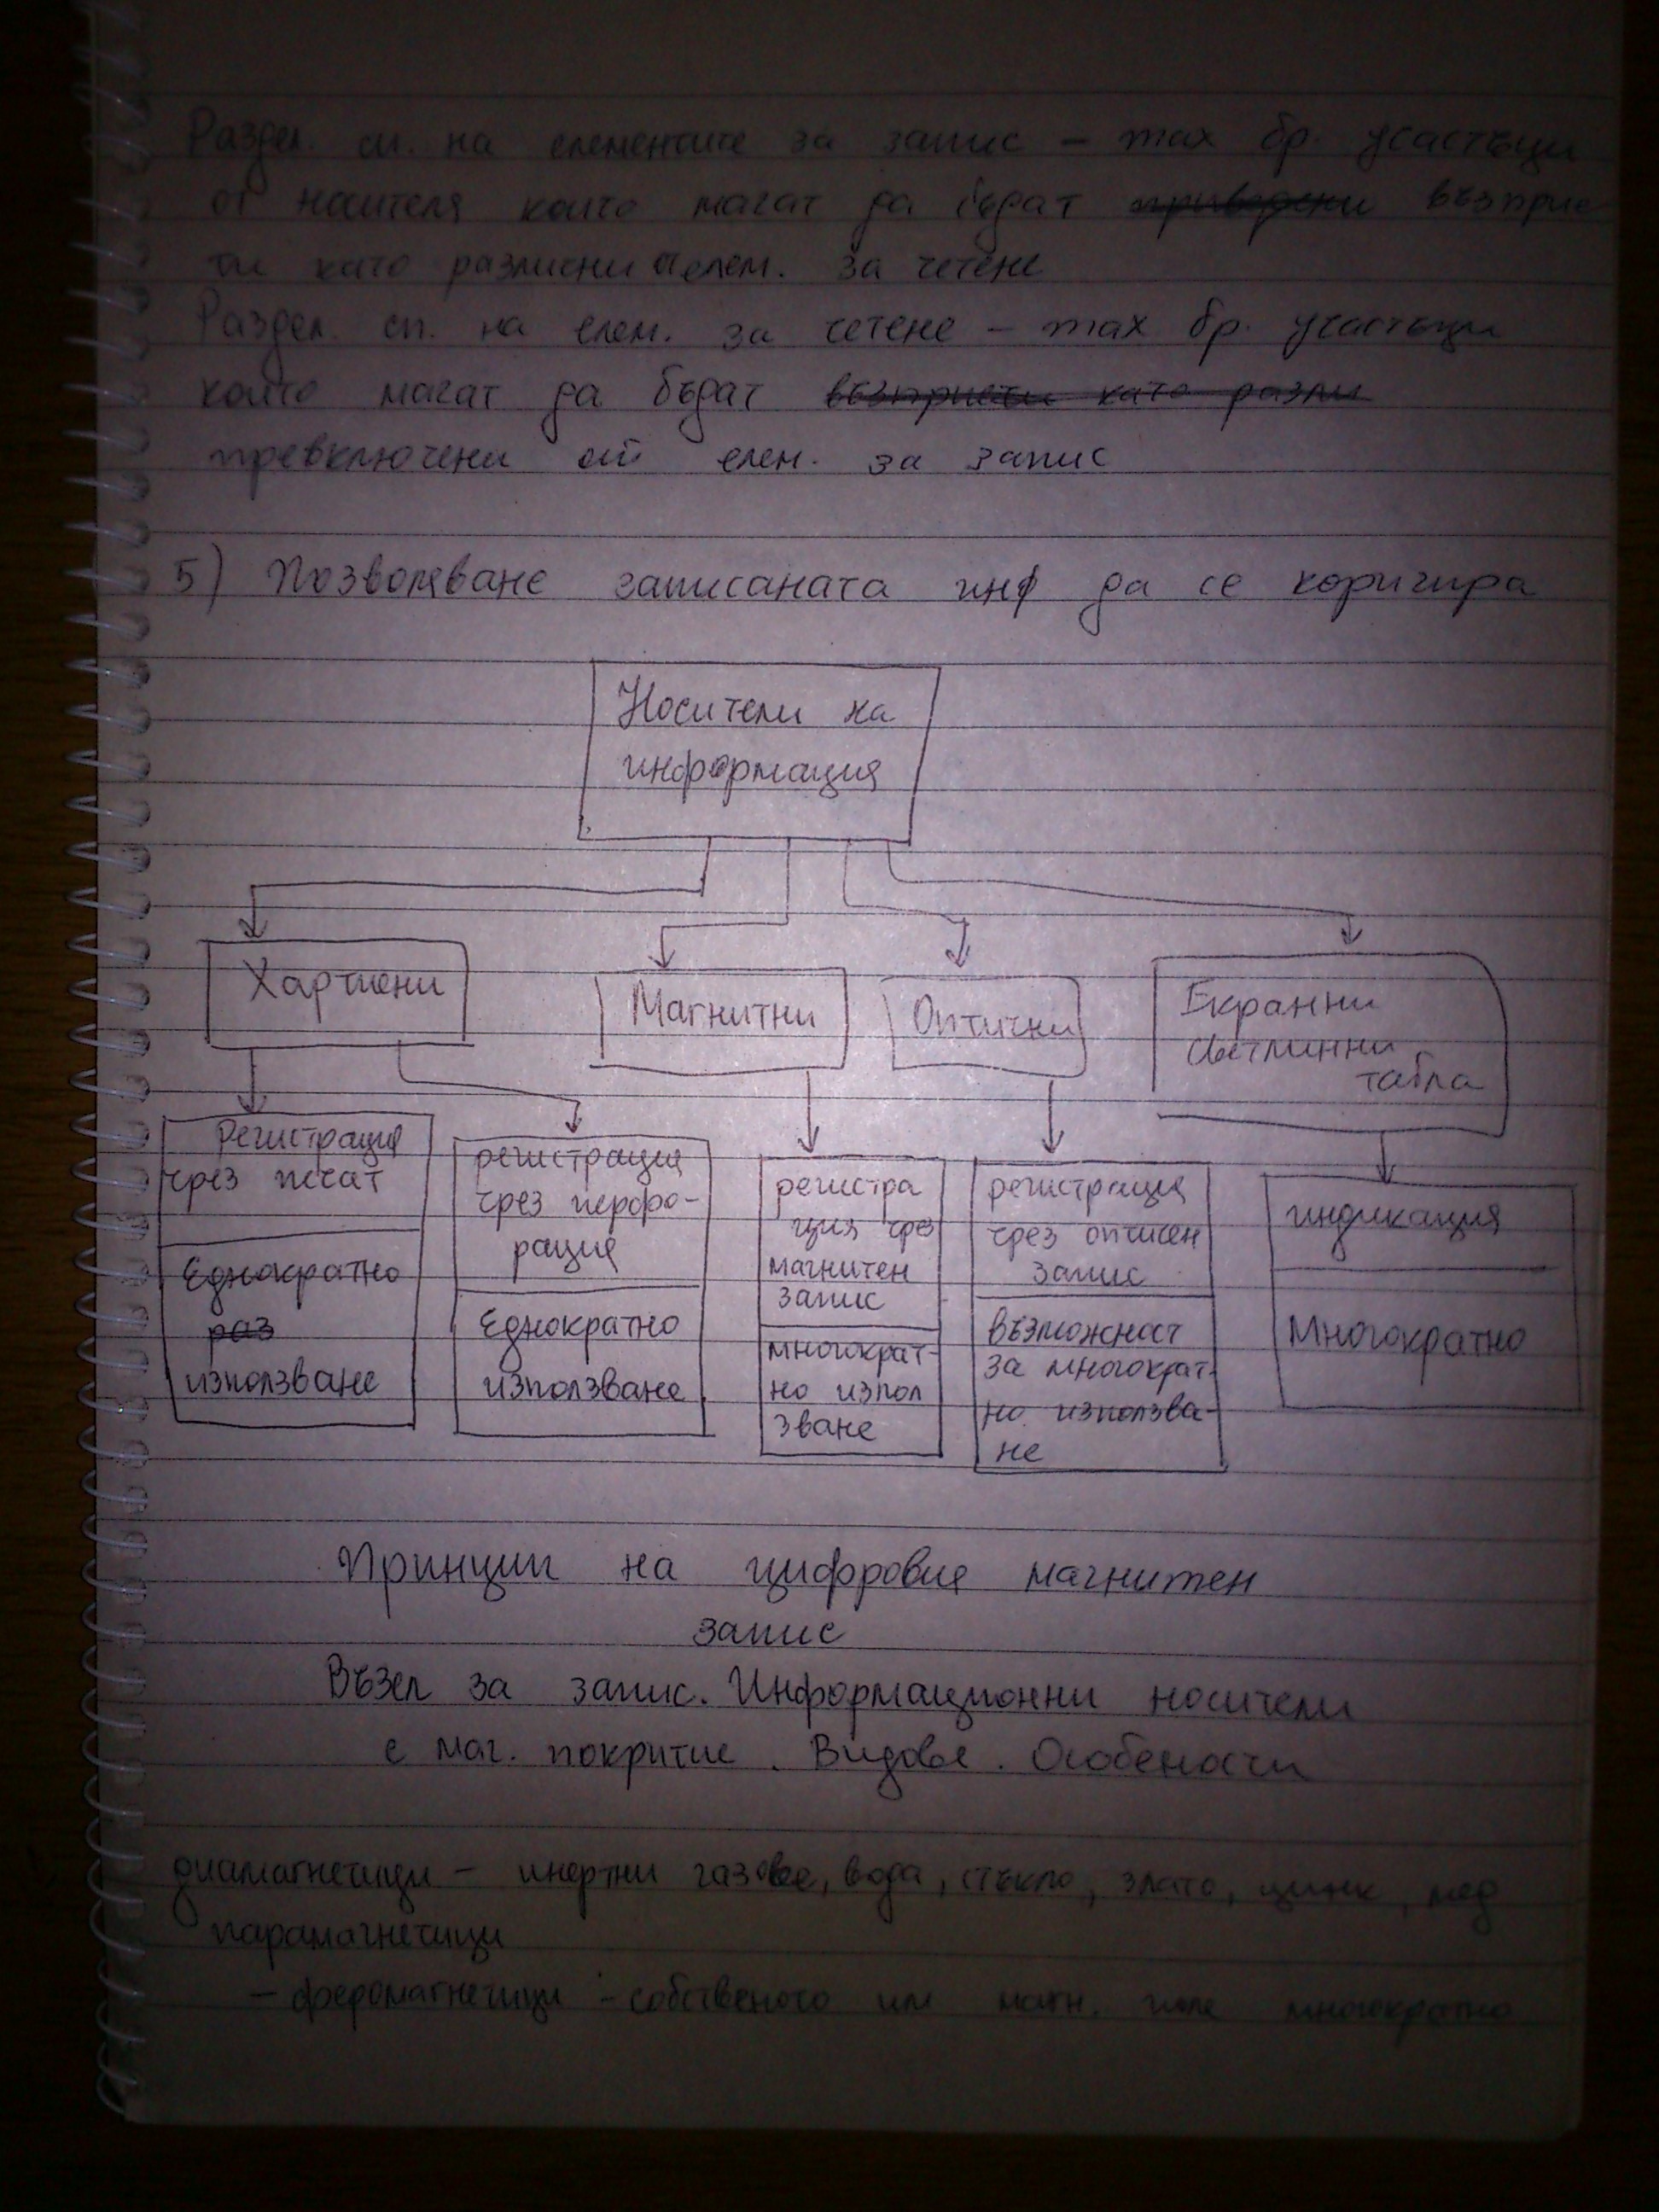 Раздел. сп. на елементите за запис – max бр. участъци
от носителя които могат да бъдат приведени възприе
ти като различни от елем. за четене
Раздел. сп. на елем. за четене – max бр. участъци
които могат да бъдат възприети като разли
превключени от елем. за запис
5) Позволяване записаната инф да се коригира
Носители на
информация
Хартиени
Магнитни
Оптични
Екранни
Светлинни
табла
Регистрация
чрез печат
Еднократно
раз
използване
регистрация
чрез перфо-
рация
Еднократно
използване
регистра
ция чрез
магнитен
запис
многократ-
но изпол
зване
регистрация
чрез оптичен
запис
възможност
за многократ-
но използва-
не
индикация
Многократно
Принцип на цифровия магнитен
запис
Възел за запис. Информационни носители
с маг. покритие. Видове. Особености
диамагнетици – инертни газове, вода, стъкло, злато, цинк, мед
парамагнетици
– феромагнетици - собственото им магн. поле многократно